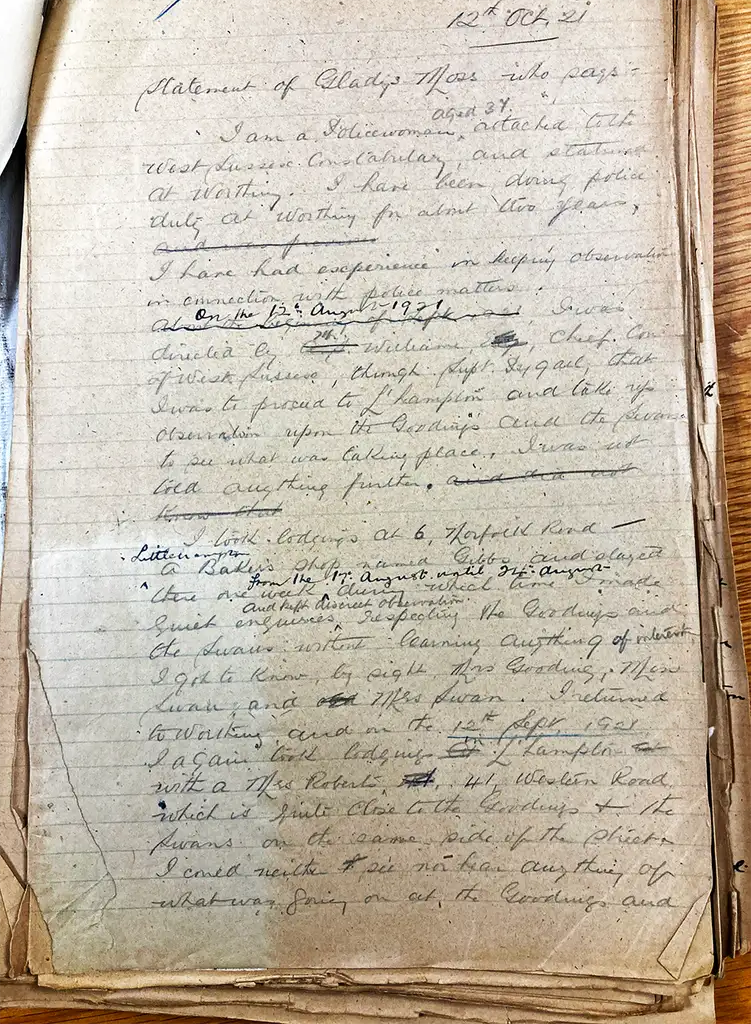 12th Oct. 21
Statement of Gladys Moss who says:-
aged 37
I am a Policewoman, attached to the
West Sussex Constabulary, and stationed
at Worthing. I have been doing police
duty at Worthing for about two years,
I have had experience in keeping observation
in connection with police matters.
On the 12th August 1921
I was
directed by William, Chief Con
of West Sussex, through Supt. that
I was to proceed to L'hampton and take up
observation upon the Goodings and the Swans
to see what was taking place. I was not
told anything further. and did not
know that
I took lodgings at 6, Norfolk Road -
Littlehampton
a Bakers shop named Gibbs and stayed
From the 17th August until 24th August
there one week during which time I made
and kept discreet observation
quiet enquiries respecting the Goodings and
the Swans without learning anything of interest
I got to know, by sight Mrs Gooding, Miss
Swan, and Mrs Swan. I returned
to Worthing and on the 12th Sept. 1921
I again took lodgings in L'hampton
with a Mrs Roberts, 41, Western Road,
which is quite close to the Goodings & the
Swans on the same side of the street.
I could neither see nor hear anything of
what was going on at the Goodings and